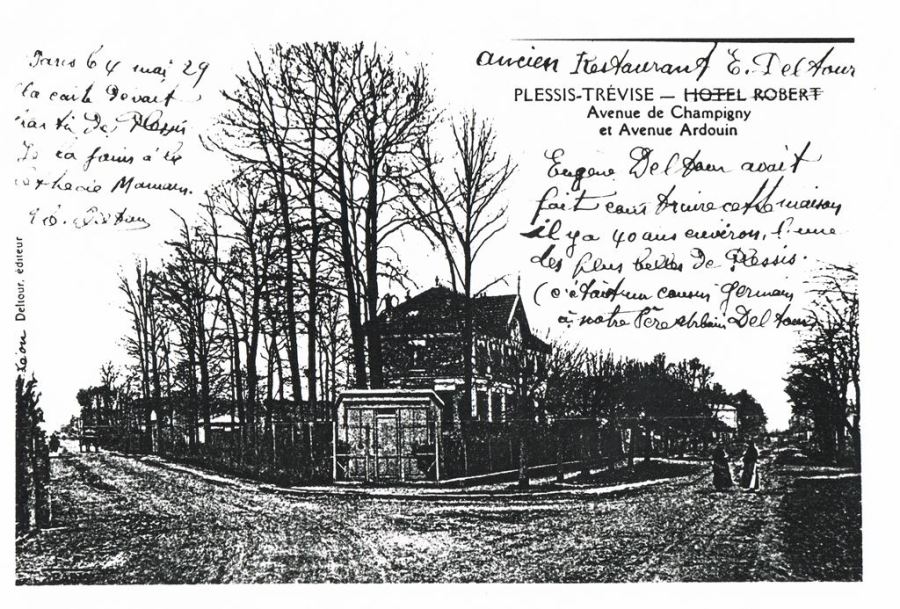 Paris le 4 mai 29
la carte devait
partir de Plessis
Je la finis à la
Maman.
ancien Restaurant E. Deltour
PLESSIS-TRÉVISE — HOTEL ROBERT
Avenue de Champigny
et Avenue Ardouin
Eugène Deltour avait
fait construire cette maison
il y a 40 ans environ, l'une
des plus belles de Plessis.
(c'était un cousin germain
à notre Père Urbain Deltour)
Léon Deltour, éditeur